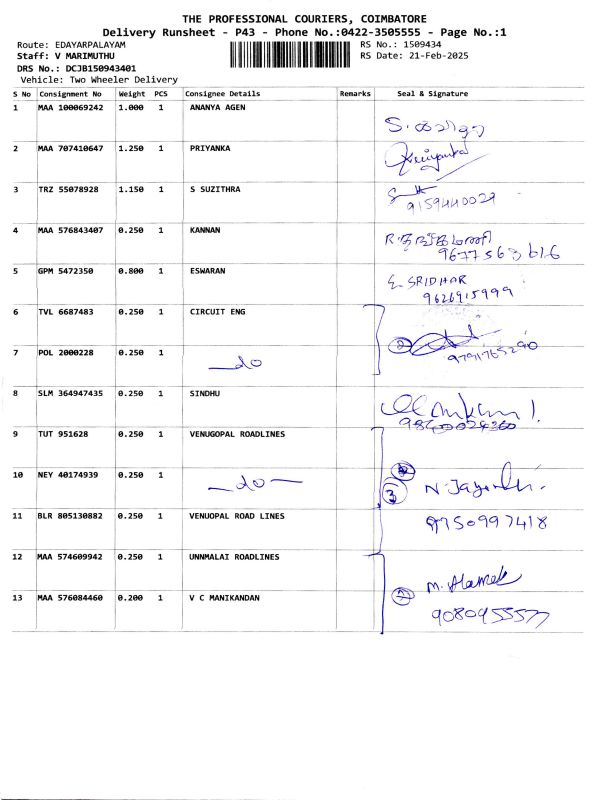 THE PROFESSIONAL COURIERS, COIMBATORE
Delivery Runsheet - P43 - Phone No.:0422-3505555 - Page No.:1
Route: EDAYARPALAYAM
RS No.: 1509434
Staff: V MARIMUTHU
RS Date: 21-Feb-2025
DRS No.: DCJB150943401
Vehicle: Two Wheeler Delivery
S No Consignment No Weight PCS Consignee Details Remarks Seal & Signature
1 MAA 100069242 1.000 1 ANANYA AGEN
2 MAA 707410647 1.250 1 PRIYANKA
Priyanka
3 TRZ 55078928 1.150 1 S SUZITHRA
9159440029
4 MAA 576843407 0.250 1 KANNAN
9677563616
5 GPM 5472350 0.800 1 ESWARAN
SRIDHAR
9626915999
6 TVL 6687483 0.250 1 CIRCUIT ENG
7 POL 2000228 0.250 1 —do
2
9791765290
8 SLM 364947435 0.250 1 SINDHU
9 TUT 951628 0.250 1 VENUGOPAL ROADLINES
10 NEY 40174939 0.250 1 —do—
3
11 BLR 805130882 0.250 1 VENUOPAL ROAD LINES
9750997418
12 MAA 574609942 0.250 1 UNNMALAI ROADLINES
13 MAA 576084460 0.200 1 V C MANIKANDAN